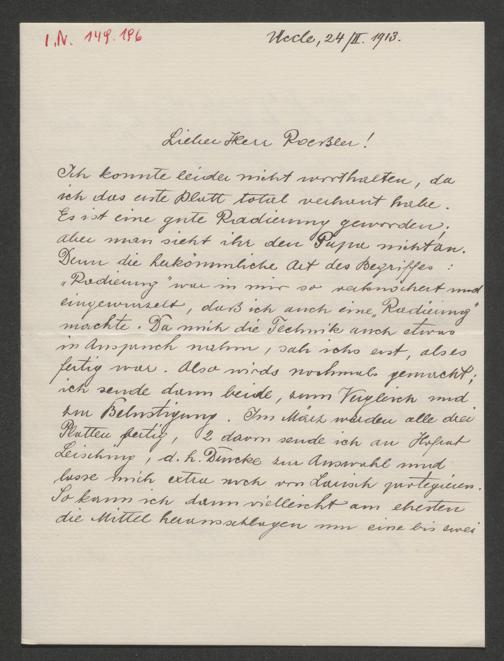 I.N. 149.196
Uccle, 24/II. 1913.
Lieber Herr Roeßler!
Ich konnte leider nicht worthalten, da
ich das erste Blatt total verhaut habe.
Es ist eine gute Radierung geworden,
aber man sieht ihr den Papa nicht an.
Denn die herkömmliche Art des Begriffes:
„Radierung" war in mir so verknöchert und
eingewurzelt, daß ich auch eine „Radierung"
machte. Da mich die Technik auch etwas
in Anspruch nahm, sah ichs erst, als es
fertig war. Also wirds nochmals gemacht;
ich sende dann beide, zum Vergleich und
zur Belustigung. Im März werden alle drei
Platten fertig, 2 davon sende ich an Hofrat
Leisching, d.h. Drucke zur Auswahl und
lasse mich extra noch von protegieren.
So kann ich dann vielleicht am ehesten
die Mittel herausschlagen um eine bis zwei